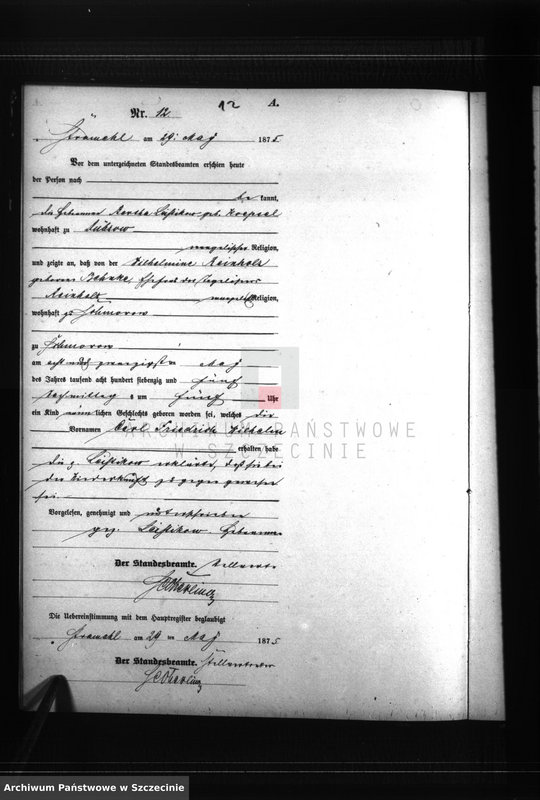 12 A.
Nr. 12
am 29. Mai 1875
Vor dem unterzeichneten Standesbeamten erschien heute
der Person nach
be kannt,
die Hebamme Leistikow geb.
wohnhaft zu
evangelischer Religion,
und zeigte an, daß von der Wilhelmine Reinholz
geborene Behnke, Ehefrau des
Reinholz evangelischer Religion,
wohnhaft zu
zu
am acht und zwanzigsten Mai
des Jahres tausend acht hundert siebenzig und fünf
Nachmittag s um fünf Uhr
ein Kind männlichen Geschlechts geboren worden sei, welches die
Vornamen Carl Friedrich Wilhelm
erhalten habe
die p. Leistikow erklärte, daß sie bei
der Niederkunft zugegen gewesen
sei.
Vorgelesen, genehmigt und unterschrieben
gez. Leistikow Hebamme
Der Standesbeamte.
Die Uebereinstimmung mit dem Hauptregister beglaubigt
am 29 ten Mai 1875
Der Standesbeamte.
ARCHIWUM PAŃSTWOWE
W SZCZECINIE
Archiwum Państwowe w Szczecinie